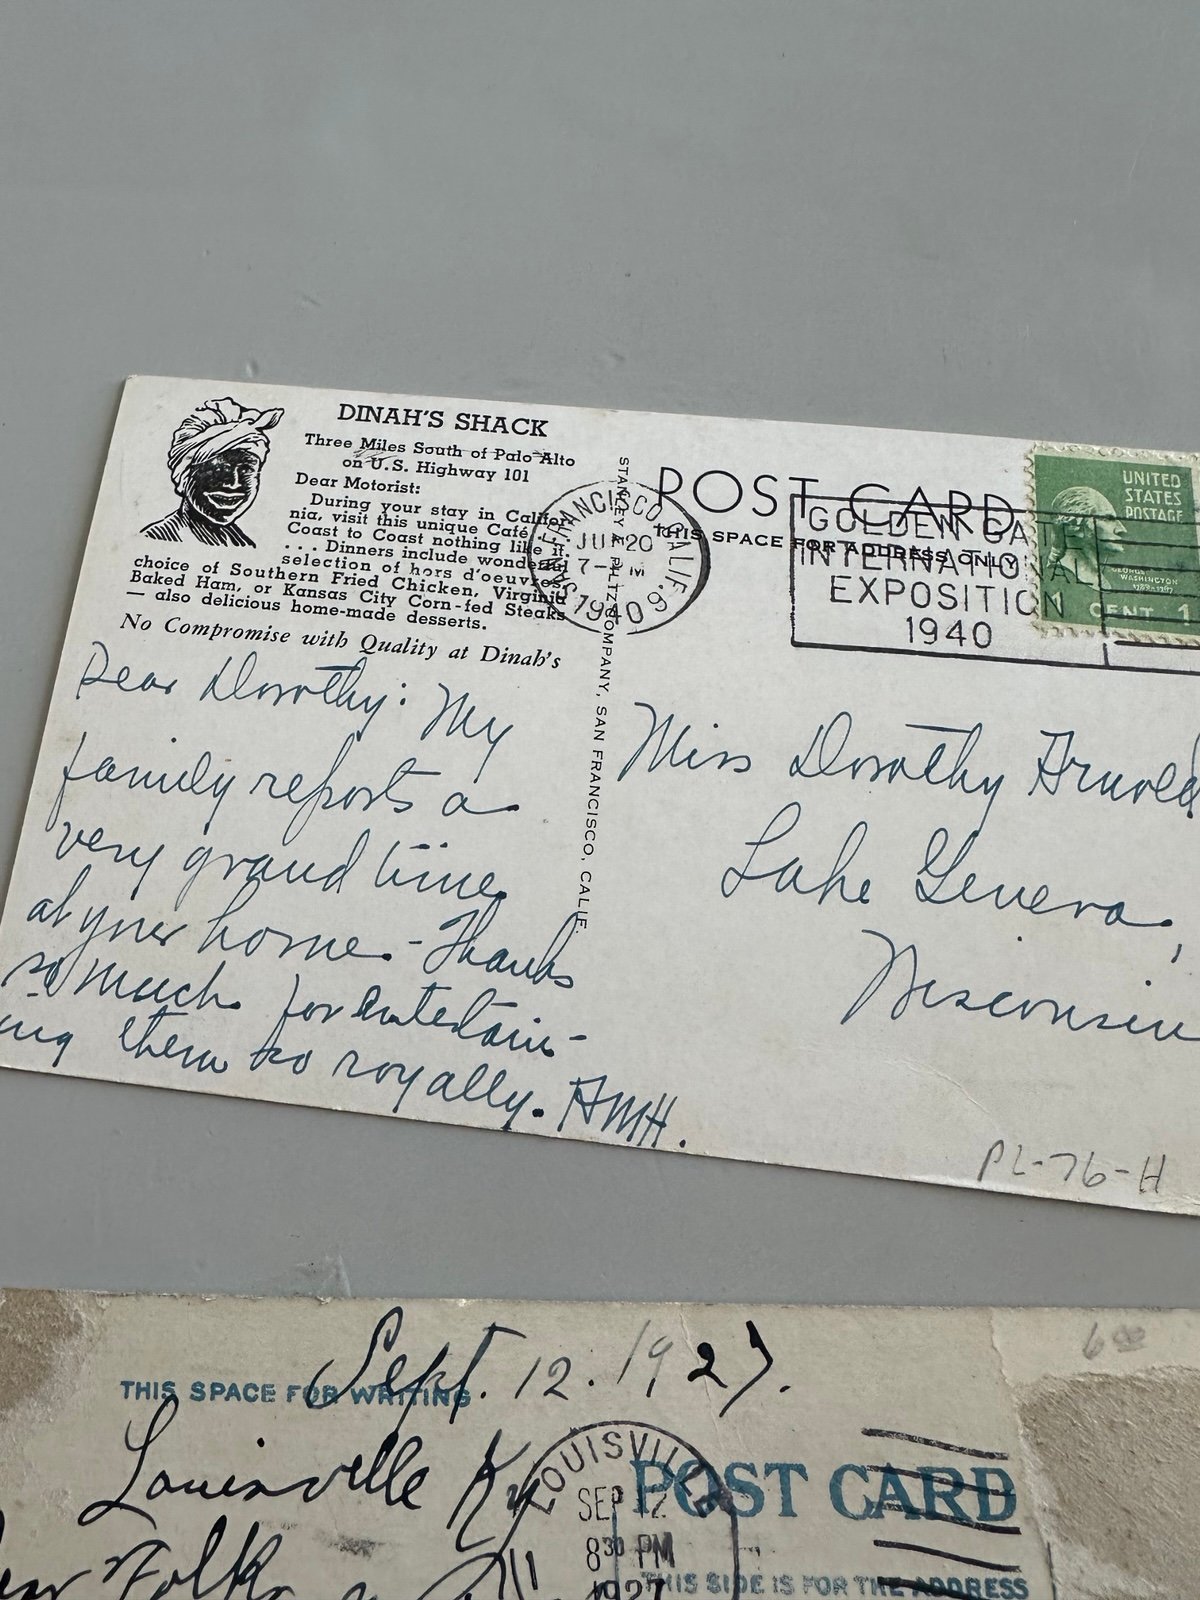 DINAH'S SHACK
Three Miles South of Palo Alto
on U.S. Highway 101
Dear Motorist:
During your stay in Califor-
nia, visit this unique Café.
Coast to Coast nothing like it.
. . . Dinners include wonderful
selection of hors d'oeuvres,
choice of Southern Fried Chicken, Virginia
Baked Ham, or Kansas City Corn-fed Steaks
— also delicious home-made desserts.
No Compromise with Quality at Dinah's
Dear Dorothy: My
family reports a
very grand time
at your home - Thanks
so much for entertain-
ing them so royally. AMH.
STANLEY A. PILTZ COMPANY, SAN FRANCISCO, CALIF.
SAN FRANCISCO, CALIF.
20
7- M
1940
6
POST CARD
THIS SPACE FOR ADDRESS ONLY
GOLDEN GATE
INTERNATIONAL
EXPOSITION
1940
UNITED
STATES
POSTAGE
GEORGE
WASHINGTON
1789-1797
1 CENT 1
Miss Dorothy Arnold
Lake Geneva,
Wisconsin
PL-76-H
Sept. 12. 1927.
THIS SPACE FOR WRITING
Louisville Ky
Folks
LOUISVILLE
SEP 12
8 30 PM
1927
POST CARD
THIS SIDE IS FOR THE ADDRESS
6 00